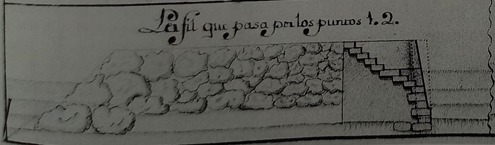 Perfil que pasa por los puntos 1. 2.